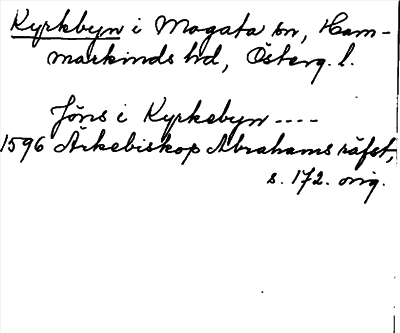 Kyrkbyn i Mogata sn, Ham-
markinds hd, Österg. l.
Jöns i Kyrkebyn ----
1596 Ärkebiskop Abrahams räfst,
s. 172. orig.